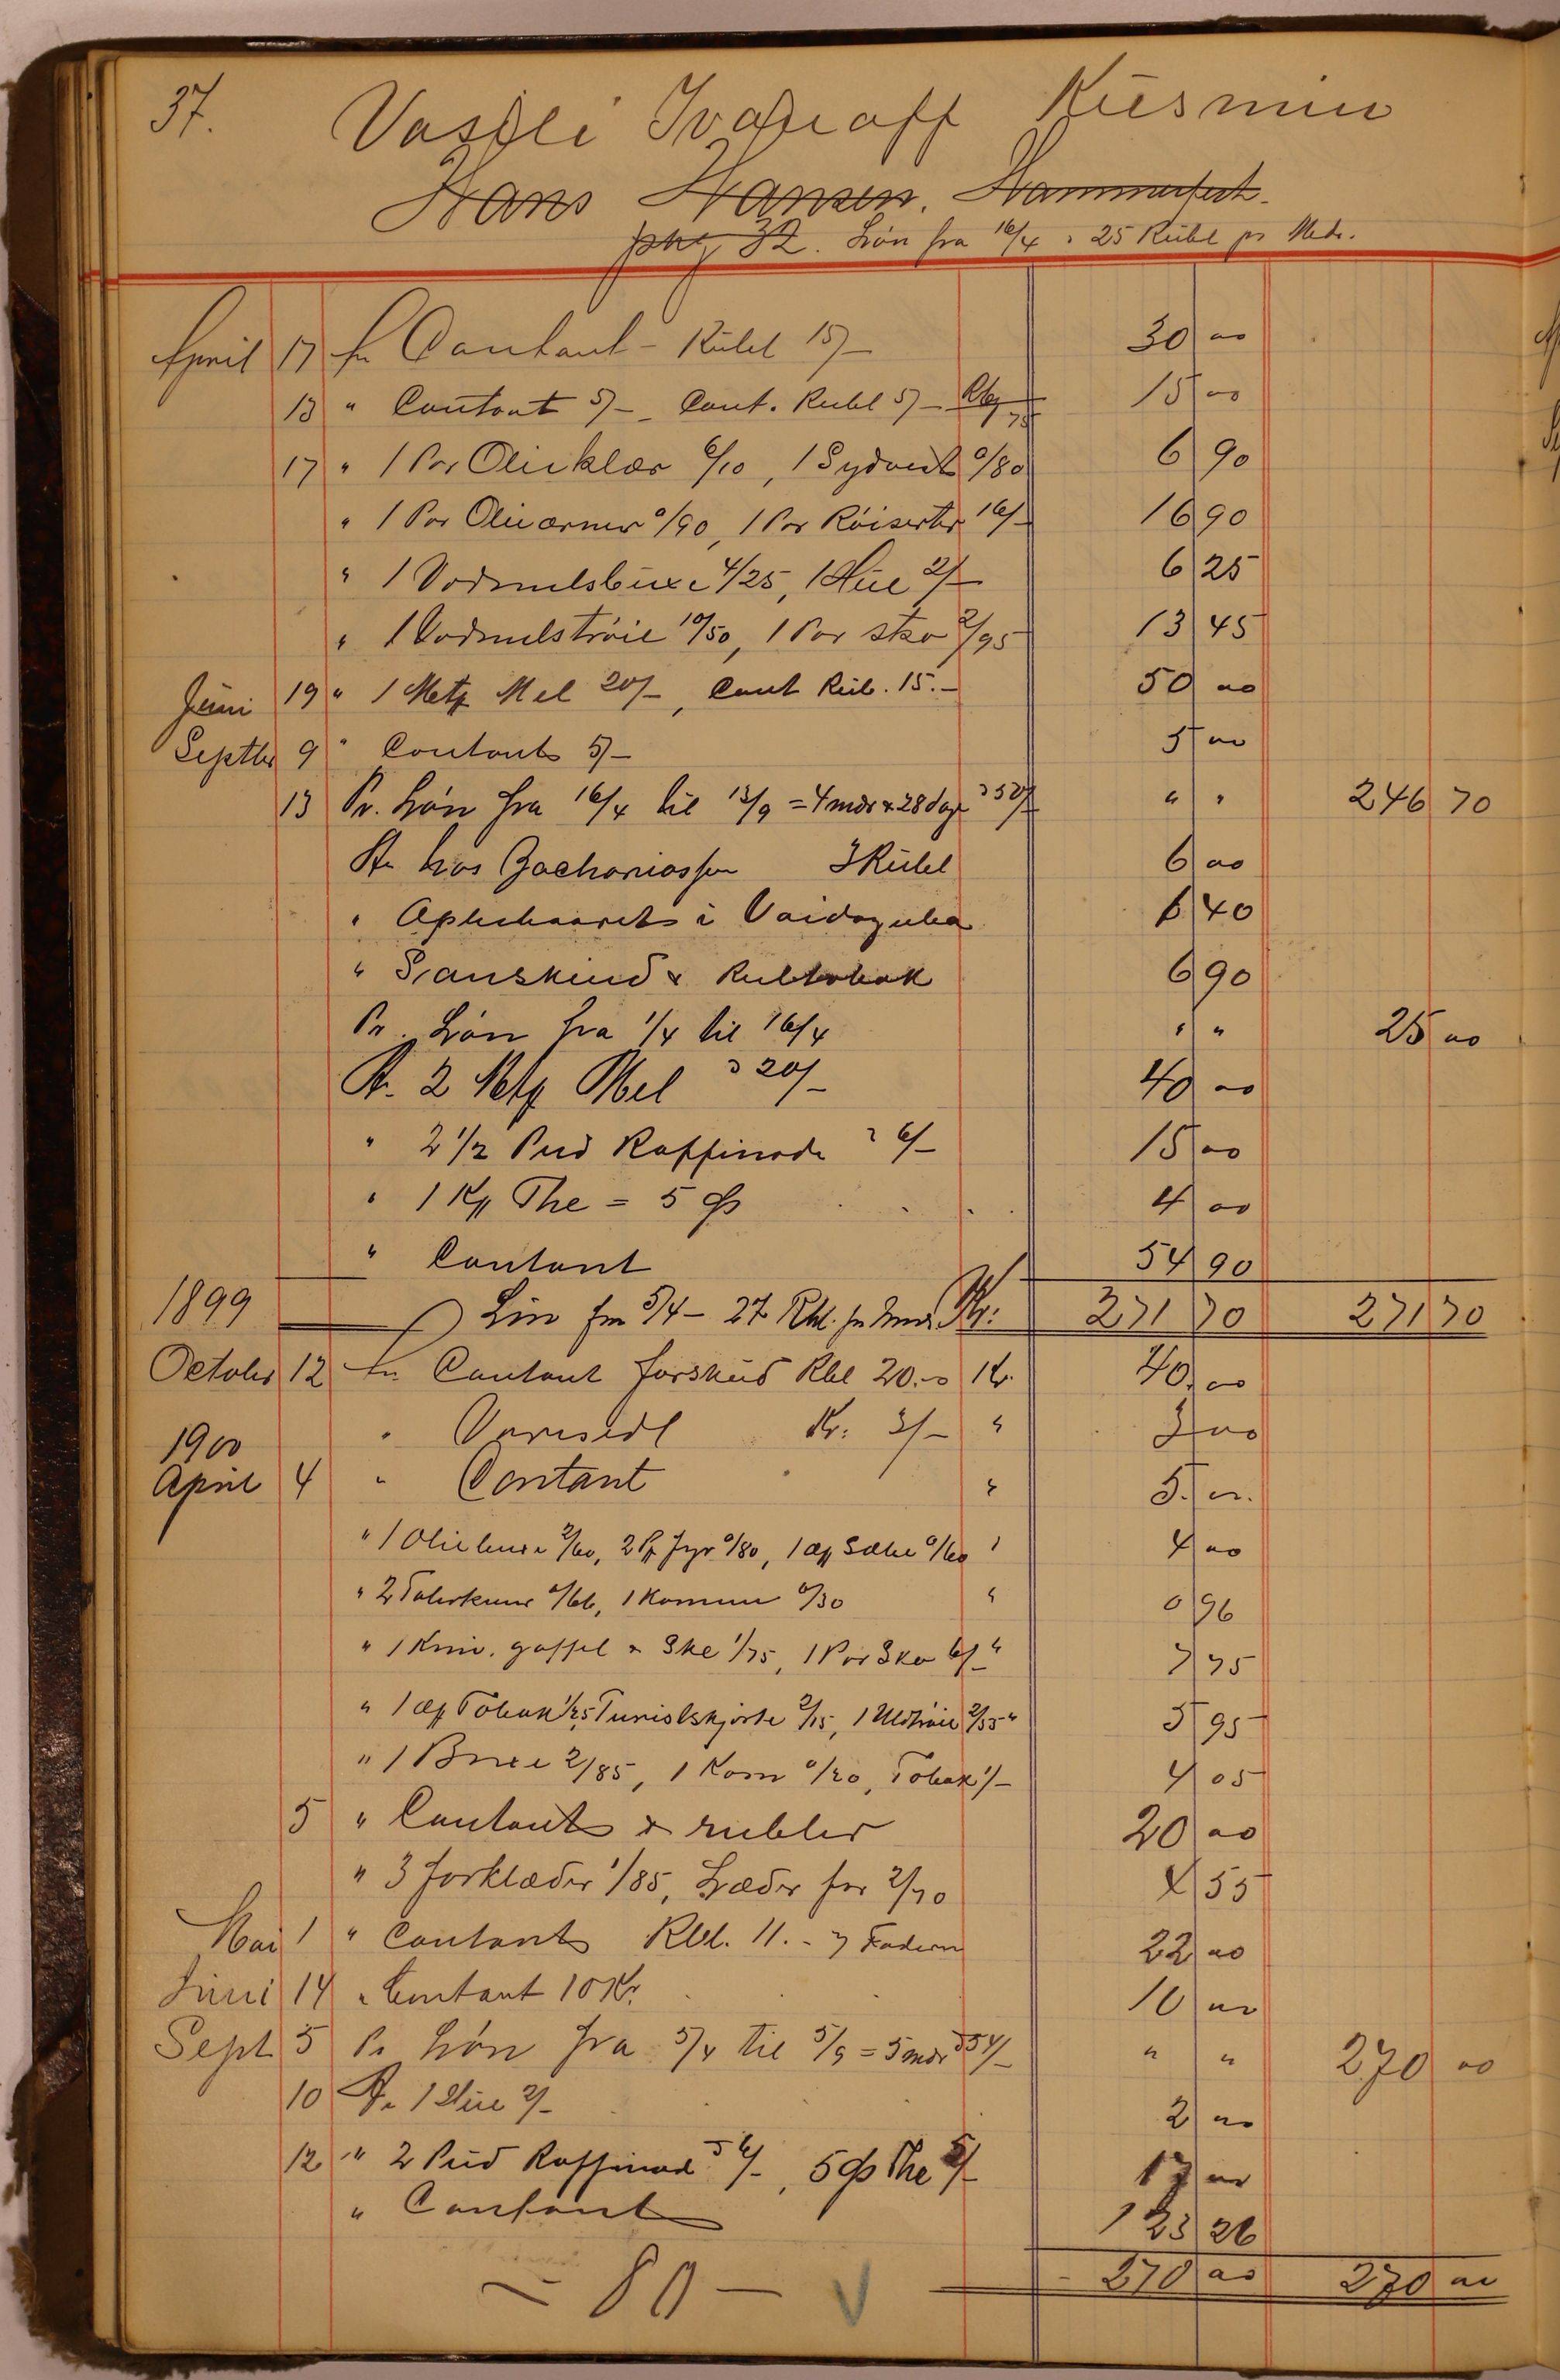 37.
Vasili Ivanoff Küsmin
Hans Hansen. Hammerfest.
pag 32. Løn fra 16/4 à 25 Rubel pr Mdr.
April 17 An Contant - Rubel 15/- 30 00
13 " Contant 5/- Cont. Rubel 5/- 15 00
17 " 1 Par Olieklær 6/10, 1 Sydvest 0/80 6 90
" 1 Par Olieærmer 0/90, 1 Par Röiserter 16/- 16 90
" 1 Vadmelsbuxe 4/25, 1 Hue 2/- 6 25
" 1 Vadmelströie 10/50, 1 Par sko 2/95 13 45
Juni 19 " 1 Mtt Mel 20/-, Cont Rub. 15.- 50 00
Septbr 9 " Contant 5/- 5 00
13 Pr. Løn fra 16/4 til 13/9 = 4 mdr & 28 dage à 50/- " " 246 70
An hos Zachariassen 3 Rubel 6 00
" i Vaidaguba 6 40
" & Rultobak 6 90
Pr. Løn fra 1/4 til 16/4 " " 25 00
An 2 Mtt Mel à 20/- 40 00
" 2 1/2 Pud Raffinade à 6/- 15 00
" 1 The = 5 4 00
" Contant 54 90
1899 Løn fra 5/4 - 27 Rbl. pr Mnd. Kr: 271 70 271 70
October 12 An Contant forskud Rbl 20.00 Kr. 40.00
" Varesedl Kr: 3/- " 3 00
1900
April 4 " Contant " 5.00.
" 1 Oliebuxe 2/60, 2 Fyr 0/80, 1 Sæbe 0/60 " 4 00
" 2 0/66, 1 Kommen 0/30 " 0 96
" 1 Kniv. gaffel & Ske 1/75, 1 Par Sko 6/- " 7 75
" 1 Tobak 1/25 Turistskjorte 2/15, 1 Uldtröie 2/55 " 5 95
" 1 Buxe 2/85, 1 Kam 0/20, Tobak 1/- 4 05
5 " Contant & rubler 20 00
" 3 forklæder 1/85, Læder for 2/70 4 55
Mai 1 " Contant Rbl. 11.- Faderen 22 00
Juni 14 " Contant 10 Kr. 10 00
Sept 5 Pr Løn fra 5/4 til 5/9 = 5 mdr à 54/- " " 270 00
10 An 1 Hue 2/- 2 00
12 " 2 Pud Raffinad à 6/-, 5 The 5/- 17 00
" Contant 123 26
270 00 270 00
- 80 -